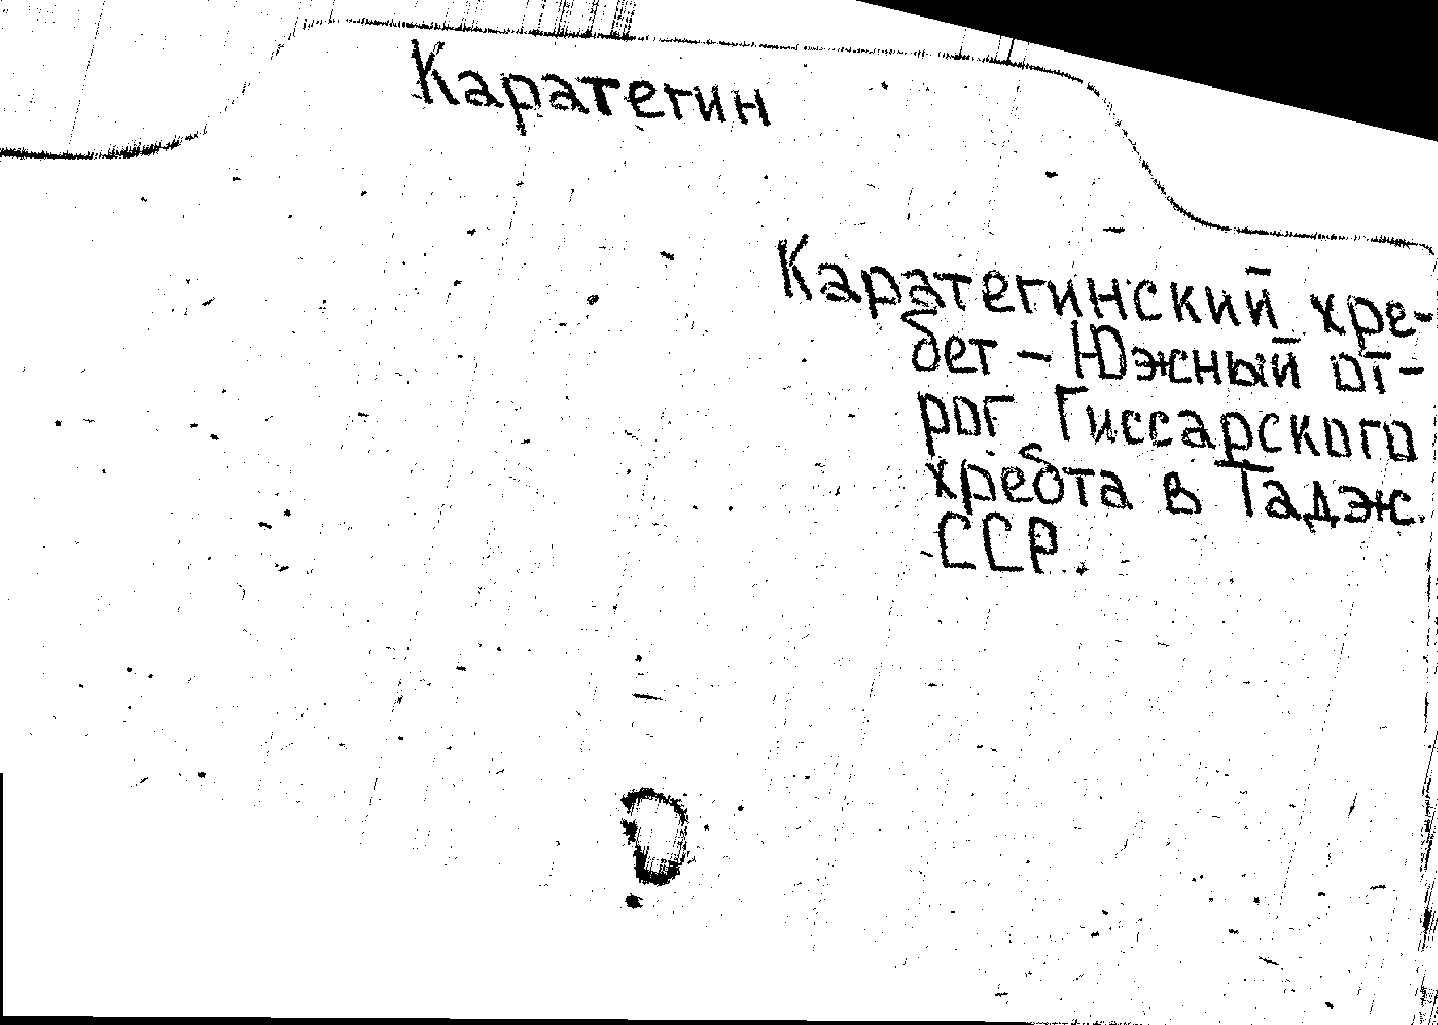 Каратегин
Каратегинский хре-
бет – Южный от-
рог Гиссарского
хребта в Тадж.
ССР.